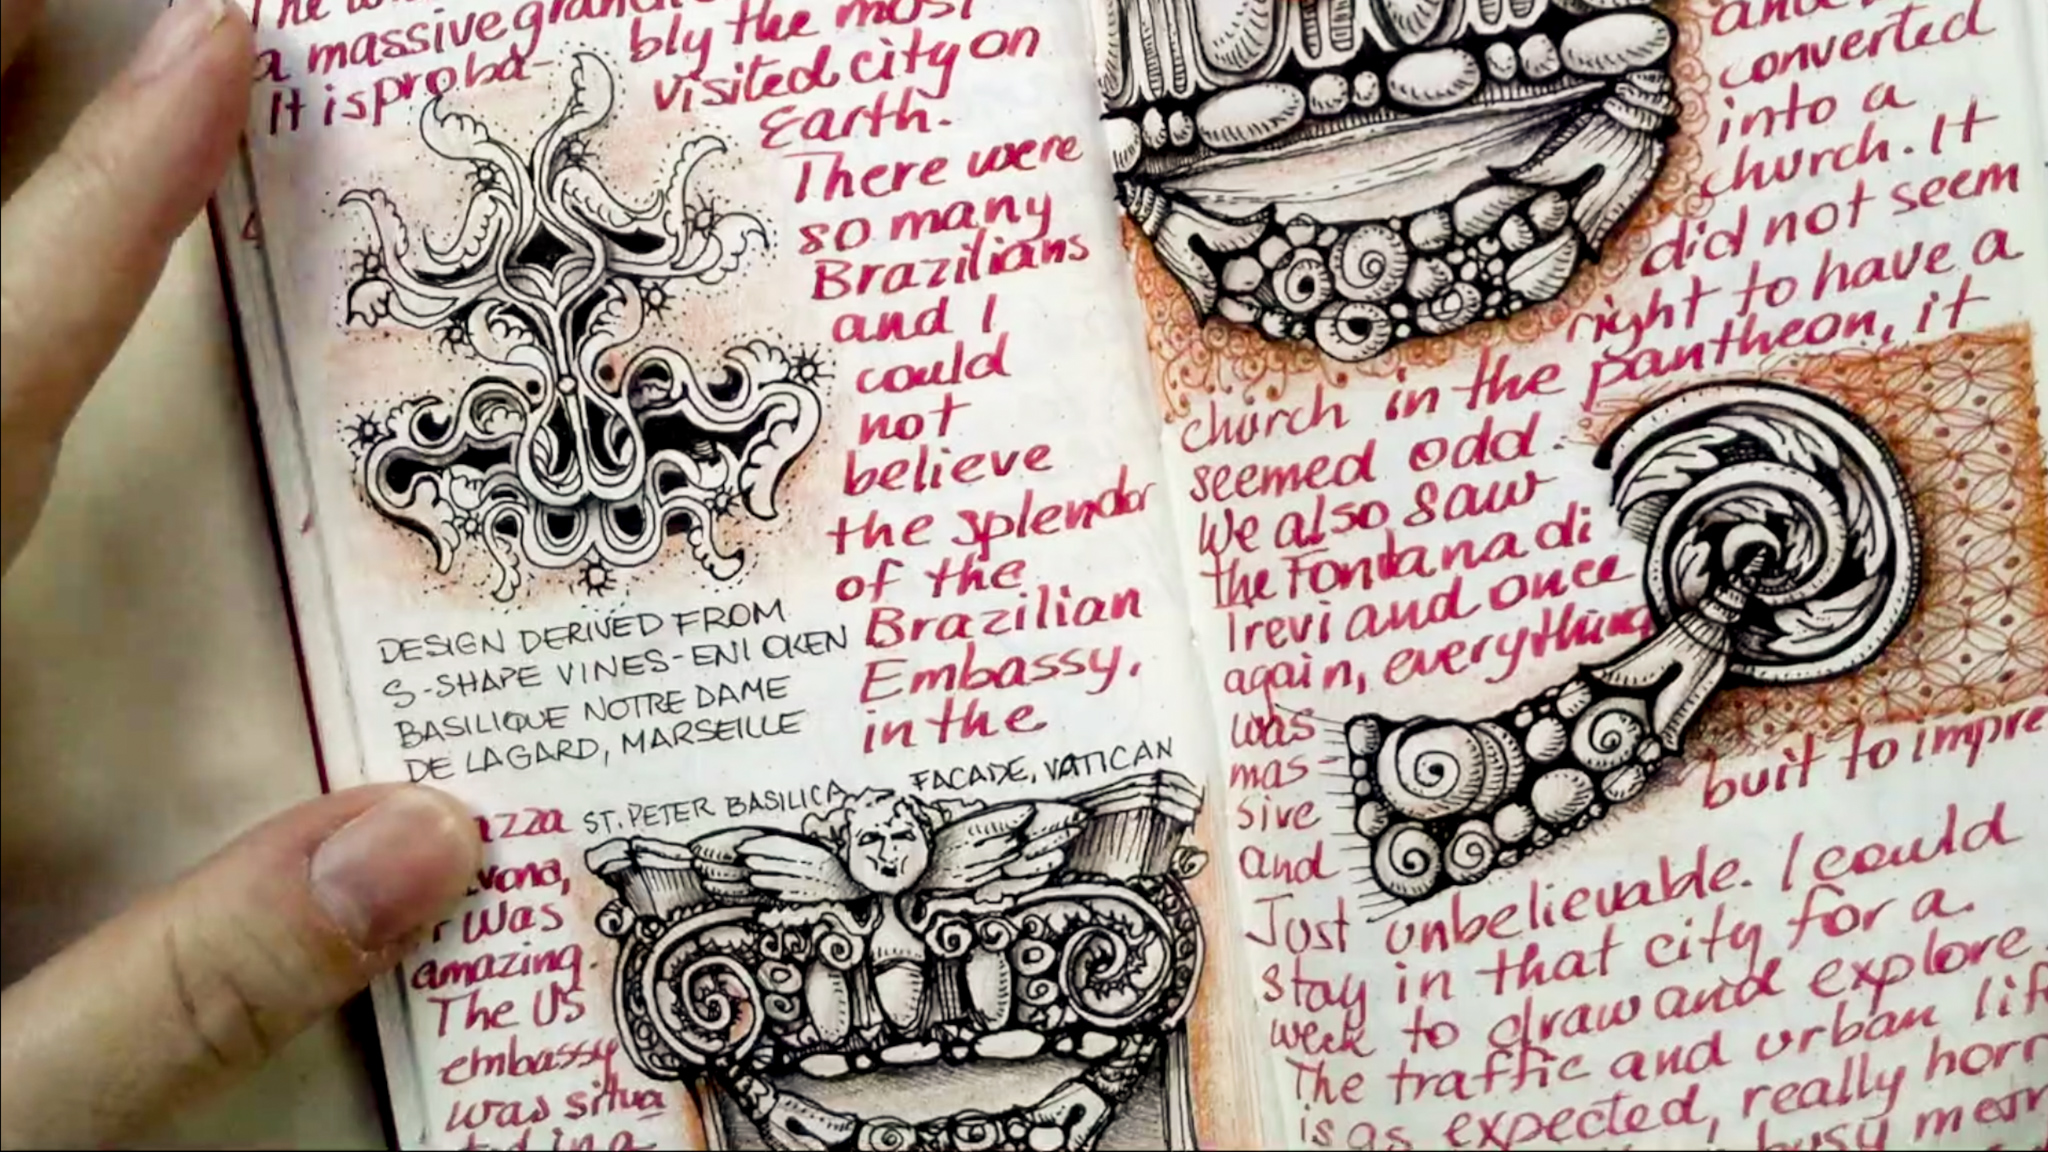 The
a massive
It is proba-
bly the most
visited city on
Earth.
There were
so many
Brazilians
and I
could
not
believe
the splendor
of the
Brazilian
Embassy,
in the
DESIGN DERIVED FROM
S-SHAPE VINES-ENI OKEN
BASILIQUE NOTRE DAME
DE LA GARD, MARSEILLE
ST. PETER BASILICA FACADE, VATICAN
azza
vona,
was
amazing.
The US
embassy
was situa
ted in a
and
converted
into a
church. It
did not seem
right to have a
church in the pantheon, it
seemed odd.
We also saw
the Fontana di
Trevi and once
again, everything
was
mas-
sive
and
buit to impre
Just unbelievable. I could
stay in that city for a
week to draw and explore
The traffic and urban lif
is as expected, really horr
busy metr